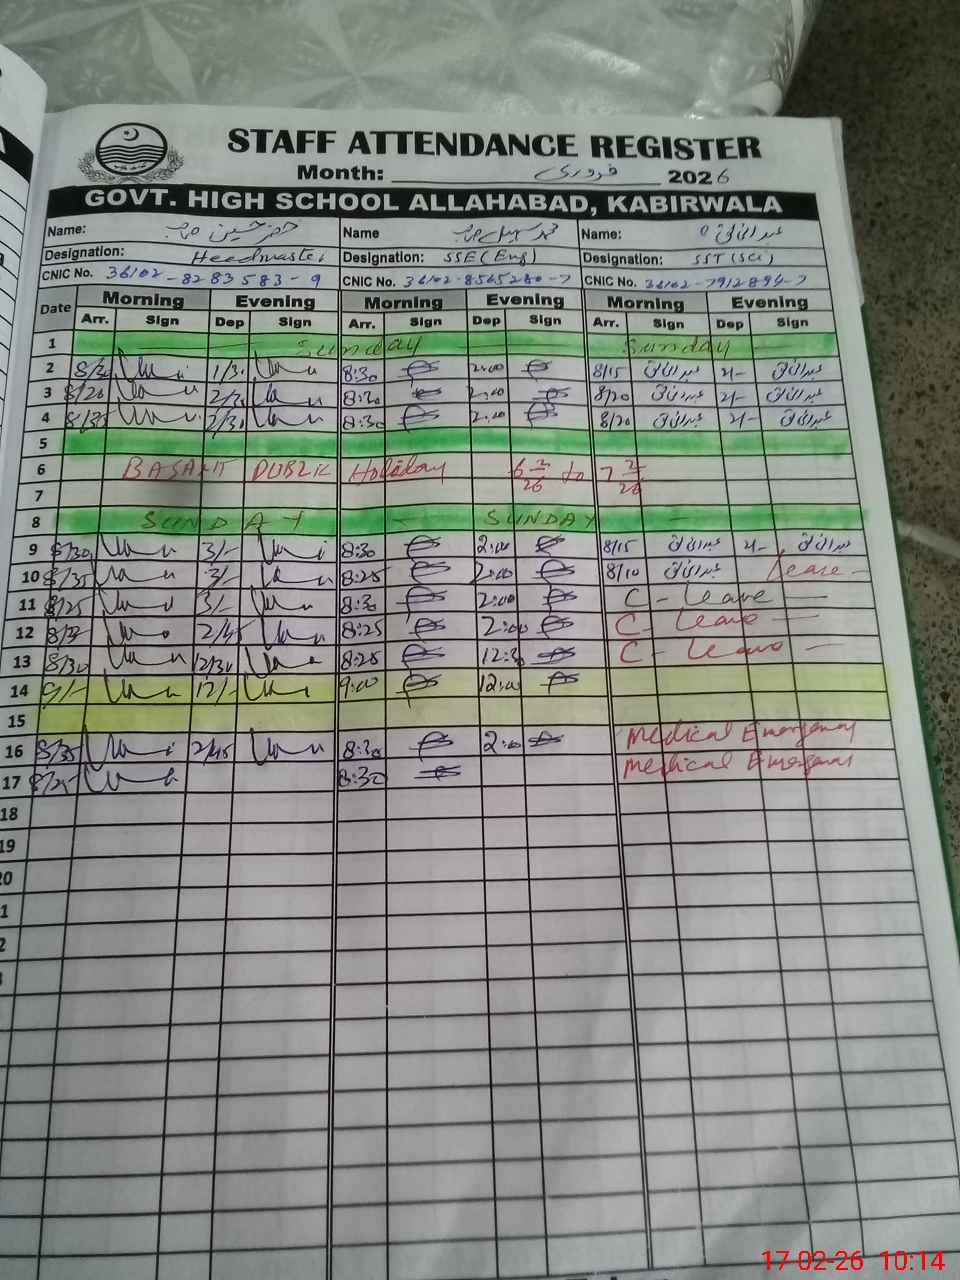 STAFF ATTENDANCE REGISTER
Month: فروری 2026
GOVT. HIGH SCHOOL ALLAHABAD, KABIRWALA
Name: خضر حسین صاحب Name محمد سہیل صاحب Name:
Designation: Headmaster Designation: SSE (Eng) Designation: SST (Sci)
CNIC No. 36102-8283583-9 CNIC No. 36102-8565280-7 CNIC No. 36102-7912894-7
Date Morning Evening Morning Evening Morning Evening
Arr. Sign Dep Sign Arr. Sign Dep Sign Arr. Sign Dep Sign
1 Sunday Sunday
2 8/30 1/30 8:30 2:00 8/15 2/-
3 8/20 2/30 8:30 2:00 8/20 2/-
4 8/35 2/30 8:30 2:00 8/20 2/-
5
6 BASANT PUBLIC Holiday 6 2/26 to 7 2/26
7
8 SUNDAY SUNDAY
9 8/30 3/- 8:30 2:00 8/15 2/-
10 8/35 3/- 8:25 2:00 8/10 Leave
11 8/25 3/- 8:30 2:00 C - Leave
12 2/45 8:25 2:00 C - Leave
13 8/30 12/30 8:25 12:30 C - Leave
14 9/- 12/- 9:00 12:00
15
16 8/35 2/45 8:30 2:00 Medical Emergency
17 8/25 8:30 Medical Emergency
18
19
20
17-02-26 10:14